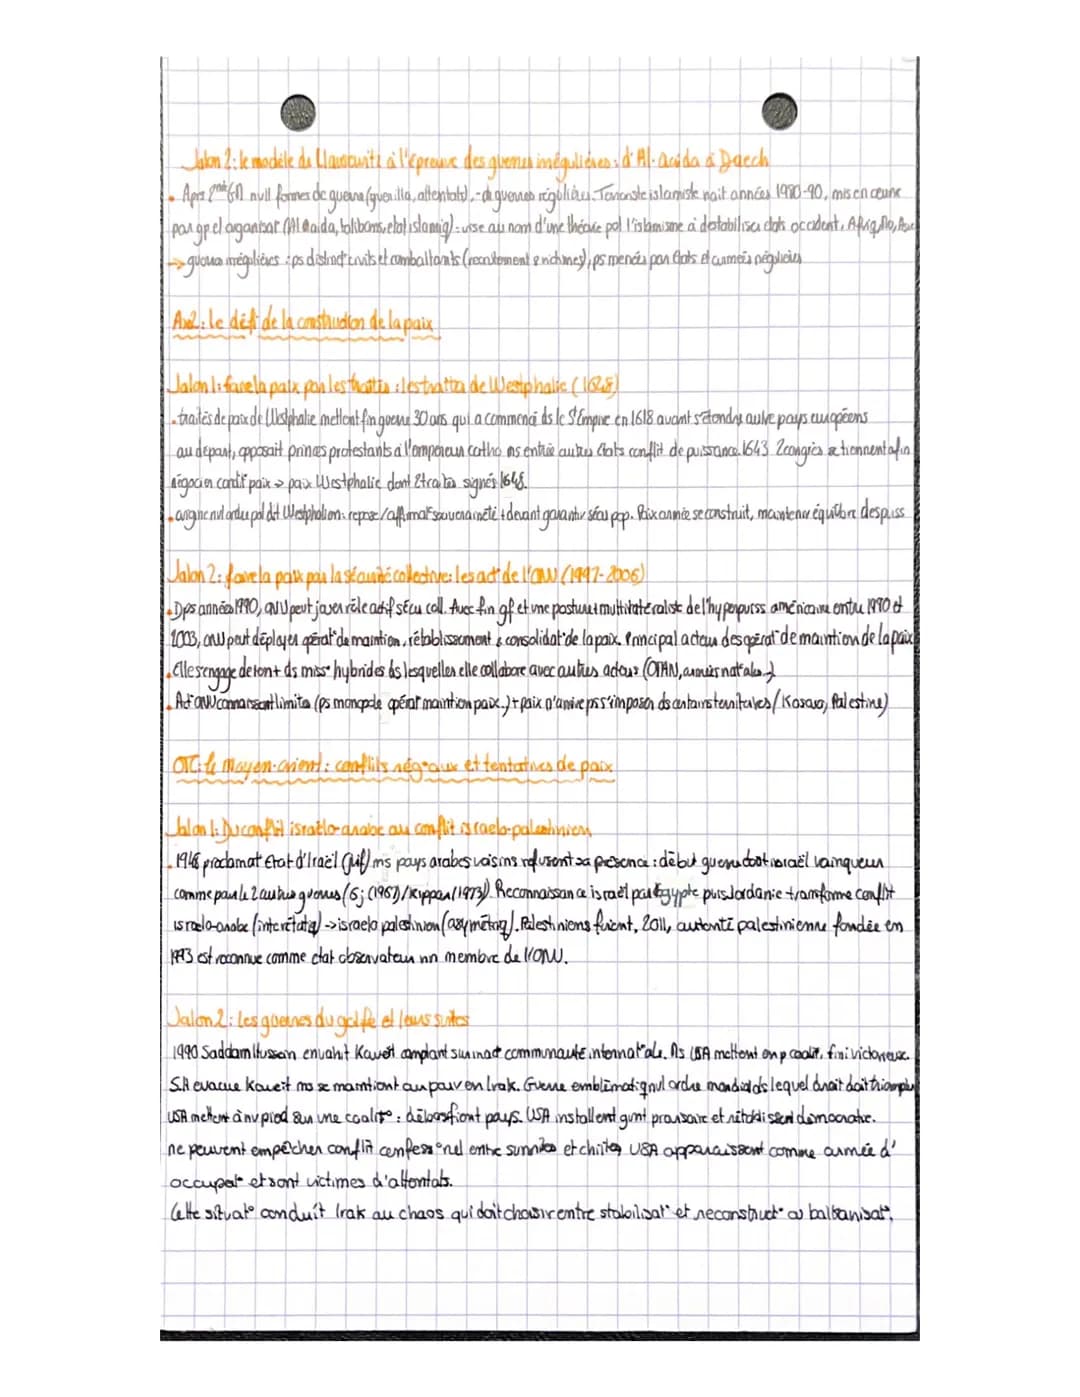 Jalon 2: le modèle de Clausewitz à l'épreuve des guerres irrégulières: d'Al-Qaida à Daech
• Aprs 2nde GM nvll formes de guerre (guerilla, attentats), - de guerres régulières. Terroriste islamiste nait années 1980-90, mis en œuvre
par gp et organisat° (Al Qaida, talibans, etat islamiq): vise au nom d'une théorie pol l'islamisme à destabiliser etats occident, Afriq No,
→ guerres irrégulières: ps distinct° civils et combattants (recrutement), ps menées par états et armées régulières
Axe 2: le défi de la construction de la paix
Jalon 1: faire la paix par les traités: les traités de Westphalie (1648)
• traités de paix de Westphalie mettent fin guerre 30 ans qui a commencé ds le St Empire en 1618 avant s'étendre autre pays européens
au départ, opposait princes protestants à l'empereur catho ms entrée autres états conflit de puissance. 1643 2 congrès se tiennent afin
négocier condit° paix → paix Westphalie dont 2 traités signés 1648.
• origine nvl ordre pol dit Westphalien: repose / affirmat° souveraineté + devant garantir sécu pop. Paix armée se construit, maintenir équilibre des puiss
Jalon 2: faire la paix par la sécurité collective: les act° de l'ONU (1997-2006)
• Dps années 1990, ONU peut jouer rôle actif sécu coll. Avec fin gf et une posture multilatéraliste de l'hyperpuiss américaine entre 1990 et
2003, onu peut déployer opérat° de maintien, rétablissement & consolidat° de la paix. Principal acteur des opérat° de maintien de la paix
• Elle s'engage de + en + ds miss° hybrides ds lesquelles elle collabore avec autres acteurs (OTAN, armées natales..)
• Act° ONU connaissent limites (ps monopole opérat° maintien paix..) + paix n'arrive ps s'imposer ds certains territoires (Kosovo, Palestine)
OTC: le Moyen-Orient: conflits rég°aux et tentatives de paix
Jalon 1: Du conflit israélo-arabe au conflit israelo-palestinien
• 1948 proclamat° Etat d'Israël (juif) ms pays arabes voisins refusent sa présence: début guerre dont israël vainqueur
comme par le 2 autres guerres (6j (1967)/Kippour (1973)). Reconnaissance israël par Egypte puis Jordanie transforme conflit
israelo-arabe (interétatiq) → israelo palestinien (asymétriq). Palestiniens fuient. 2011, autorité palestinienne fondée en
1993 est reconnue comme état observateur nn membre de l'ONU.
Jalon 2: les guerres du golfe et leurs suites
1990 Saddam Hussein envahit Koweït comptant sur inact° communauté internat°ale. Ms USA mettent en p coalit°, fini victorieux.
S.H evacue Koweit ms se maintient au pouv en Irak. Guerre emblématiq nvl ordre mondial ds lequel droit doit triompher
USA mettent à nv pied sur une coalit°: débarssent pays. USA installent gvnt provisoire et rétablissent démocratie.
ne peuvent empêcher conflit confess°nel entre sunnites et chiites USA apparaissent comme armée d'
occupat° et sont victimes d'attentats.
Cette situat° conduit Irak au chaos qui doit choisir entre stabilisat° et reconstruct° ou balkanisat°.